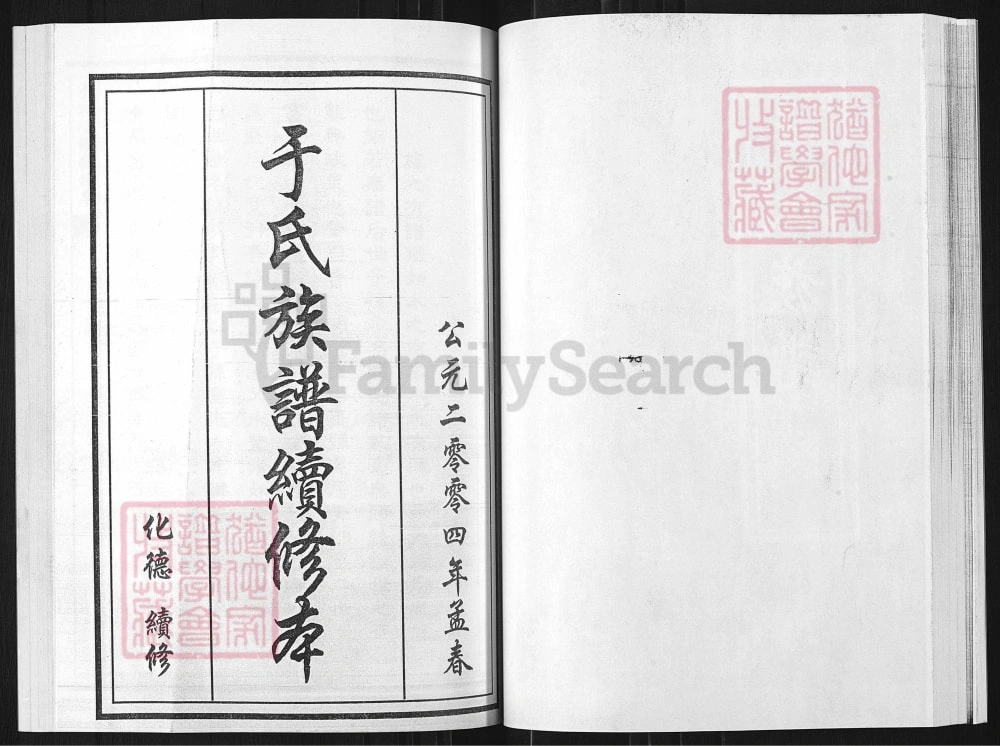 公元二零零四年孟春
于氏族譜續修本
化德 續修
猶他家
譜學會
收藏
猶他家
譜學會
收藏
FamilySearch